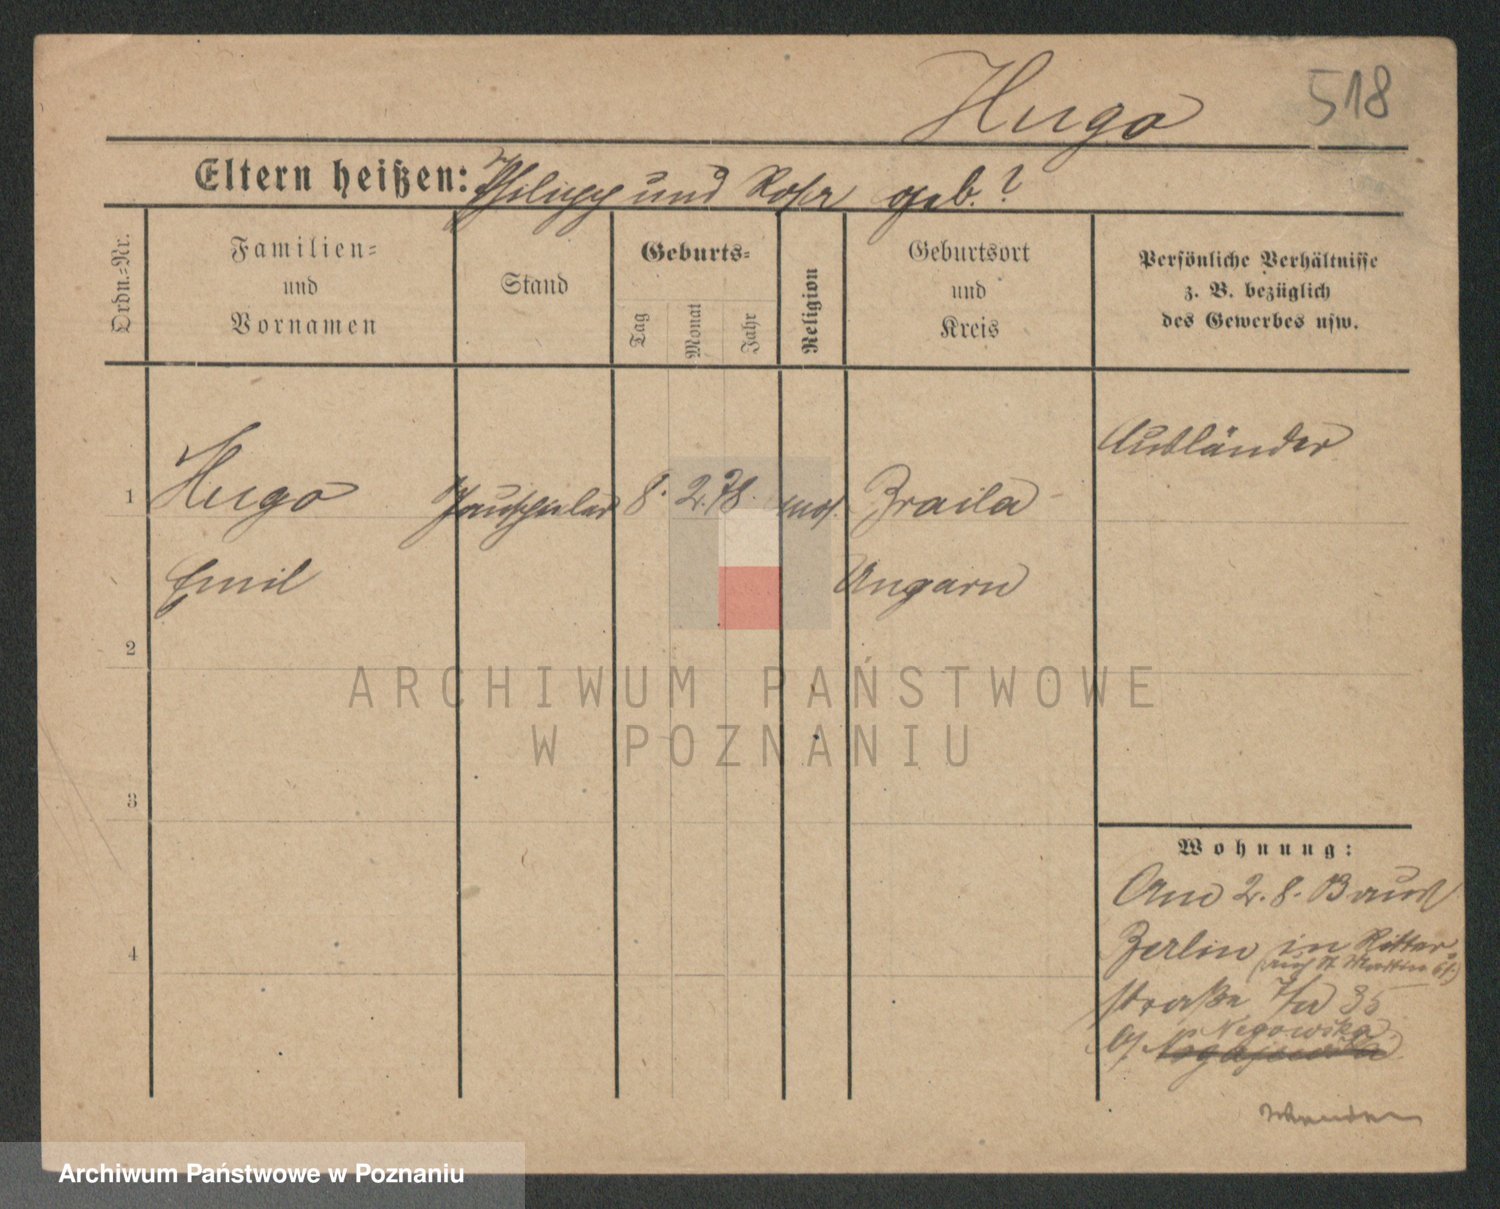 Hugo 518
Eltern heißen: Philipp und Rosa geb.?
Ordn.-Nr.
Familien-
und
Vornamen
Stand
Geburts-
Tag
Monat
Jahr
Religion
Geburtsort
und
Kreis
Persönliche Verhältnisse
z. B. bezüglich
des Gewerbes usw.
Ausländer
1 Hugo 8. 2. 78. mos. Braila
Emil Ungarn
2
3
4
Wohnung:
Am 2. 8.
Berlin in Ritter
straße 35
Negowska
ARCHIWUM PAŃSTWOWE
W POZNANIU
Archiwum Państwowe w Poznaniu